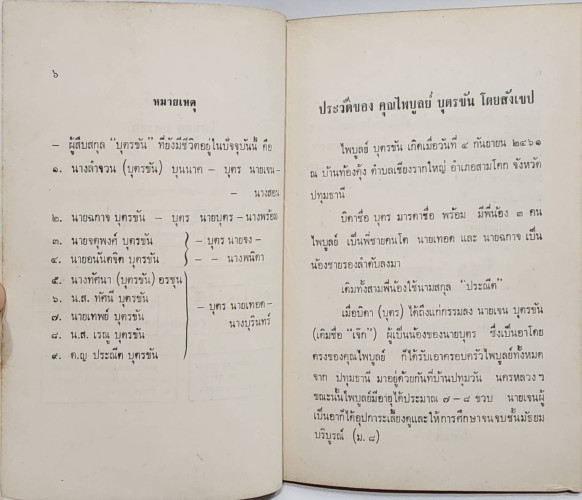 ๖
หมายเหตุ
– ผู้สืบสกุล “บุตรขัน” ที่ยังมีชีวิตอยู่ในปัจจุบันนี้ คือ
๑. นางลำจวน (บุตรขัน) บุนนาค – บุตร นายเจน –
– นางสอน
๒. นายฉกาจ บุตรขัน – บุตร นายบุตร – นางพร้อม
๓. นายจตุพงศ์ บุตรขัน
๔. นายอนันตจิต บุตรขัน
– บุตร นายจง –
– – นางพนิดา
๕. นางทัศนา (บุตรขัน) อรชุน
๖. น.ส. ทัศนี บุตรขัน
๗. นายเทพย์ บุตรขัน
๘. น.ส. เรณู บุตรขัน
๙. ด.ญ ประณีต บุตรขัน
– บุตร นายเทอด –
นางบุรินทร์
ประวัติของ คุณไพบูลย์ บุตรขัน โดยสังเขป
ไพบูลย์ บุตรขัน เกิดเมื่อวันที่ ๔ กันยายน ๒๔๖๑
ณ บ้านท้องคุ้ง ตำบลเชียงรากใหญ่ อำเภอสามโคก จังหวัด
ปทุมธานี
บิดาชื่อ บุตร มารดาชื่อ พร้อม มีพี่น้อง ๓ คน
ไพบูลย์ เป็นพี่ชายคนโต นายเทอด และ นายฉกาจ เป็น
น้องชายรองลำดับลงมา
เดิมทั้งสามพี่น้องใช้นามสกุล “ประณีต”
เมื่อบิดา (บุตร) ได้ถึงแก่กรรมลง นายเจน บุตรขัน
(เดิมชื่อ “เจ๊ก”) ผู้เป็นน้องของนายบุตร ซึ่งเป็นอาโดย
ตรงของคุณไพบูลย์ ก็ได้รับเอาครอบครัวไพบูลย์ทั้งหมด
จาก ปทุมธานี มาอยู่ด้วยกันที่บ้านปทุมวัน นครหลวงฯ
ขณะนั้นไพบูลย์มีอายุได้ประมาณ ๗ – ๘ ขวบ นายเจนผู้
เป็นอาก็ได้อุปการะเลี้ยงดูและให้การศึกษาจนจบชั้นมัธยม
บริบูรณ์ (ม. ๘)